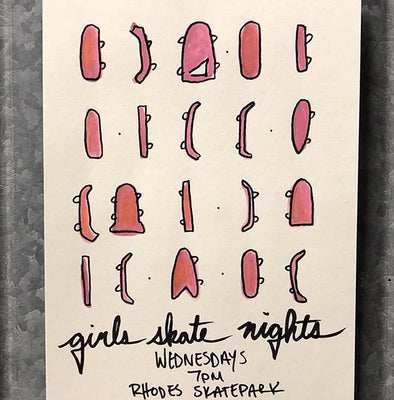 girls skate nights
WEDNESDAYS
7PM
RHODES SKATEPARK